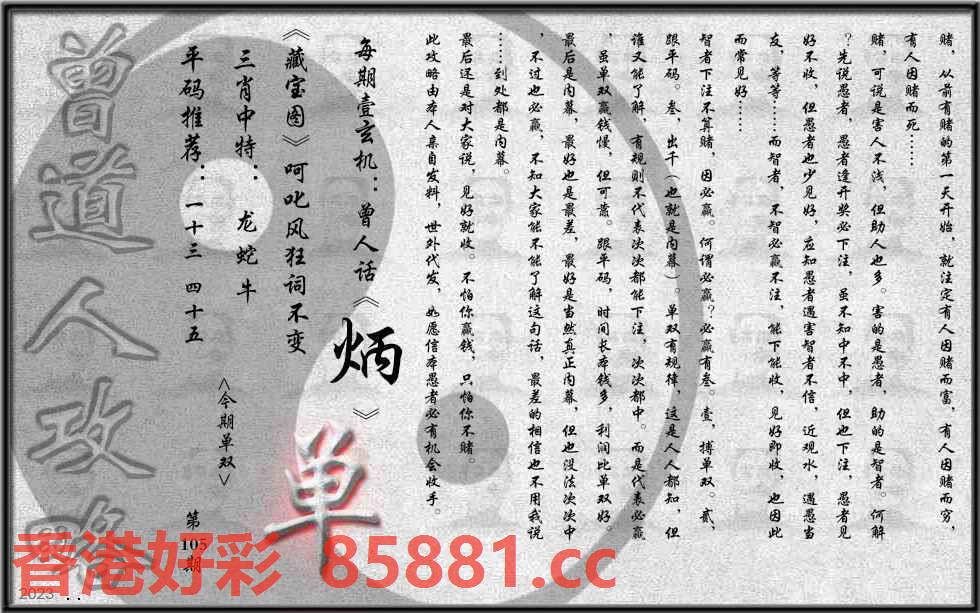 赌，从前有赌的第一天开始，就注定有人因赌而富，有人因赌而穷，
有人因赌而死……
赌，可说是害人不浅，但助人也多。害的是愚者，助的是智者。何解
？先说愚者，愚者逢开奖必下注，虽不知中不中，但也下注，愚者见
好不收，但愚者也少见好，应知愚者遇害智者不信，近观水，遇愚当
友，等等……而智者，不智必赢不注，能下能收，见好即收，也因此
而常见好……
智者下注不算赌，因必赢。何谓必赢？必赢有叁。壹，搏单双。贰，
跟平码。叁，出千（也就是内幕）。单双有规律，这是人人都知，但
谁又能了解，有规则不代表次次都能下注，次次都中。而是代表必赢
，虽单双赢钱慢，但可靠。跟平码，时间长本钱多，利润比单双好。
最后是内幕，最好也是最差，最好是当然真正内幕，但也没法次次中
，不过也必赢，不知大家能不能了解这句话，最差的相信也不用我说
……到处都是内幕。
最后还是对大家说，见好就收。不怕你赢钱，只怕你不赌。
此攻略由本人亲自发料，世外代发，如愿信本愚者必有机会收手。
每期壹玄机：曾人话《炳》
《藏宝图》呵叱风狂词不变
三肖中特：龙蛇牛
平码推荐：一十三 四十五
<今期单双>
单
第105期
曾道人攻略
香港好彩 85881.cc
2023